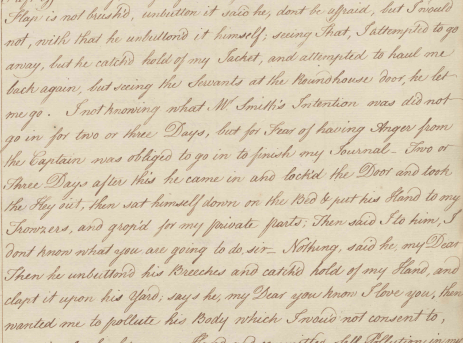 Flap is not brush'd, unbutton it said he, dont be affraid, but I would
not, with that he unbutton'd it himself; seeing That, I attempted to go
away, but he catch'd hold of my Jacket, and attempted to haul me
back again, but seeing the Servants at the Roundhouse door, he let
me go. I not knowing what Mr. Smith's Intention was did not
go in for two or three Days, but for Fear of having Anger from
the Captain was obliged to go in to finish my Journal - Two or
Three Days after this he came in and lock'd the Door and took
the Key out, then sat himself down on the Bed & put his Hand to my
Trowzers, and grop'd for my private parts; Then said I to him, I
dont know what you are going to do, sir - Nothing, said he, my Dear
Then he unbutton'd his Breeches and catch'd hold of my Hand, and
clapt it upon his Yard; says he, my Dear you know I love you, then
wanted me to pollute his Body which I woud not consent to;